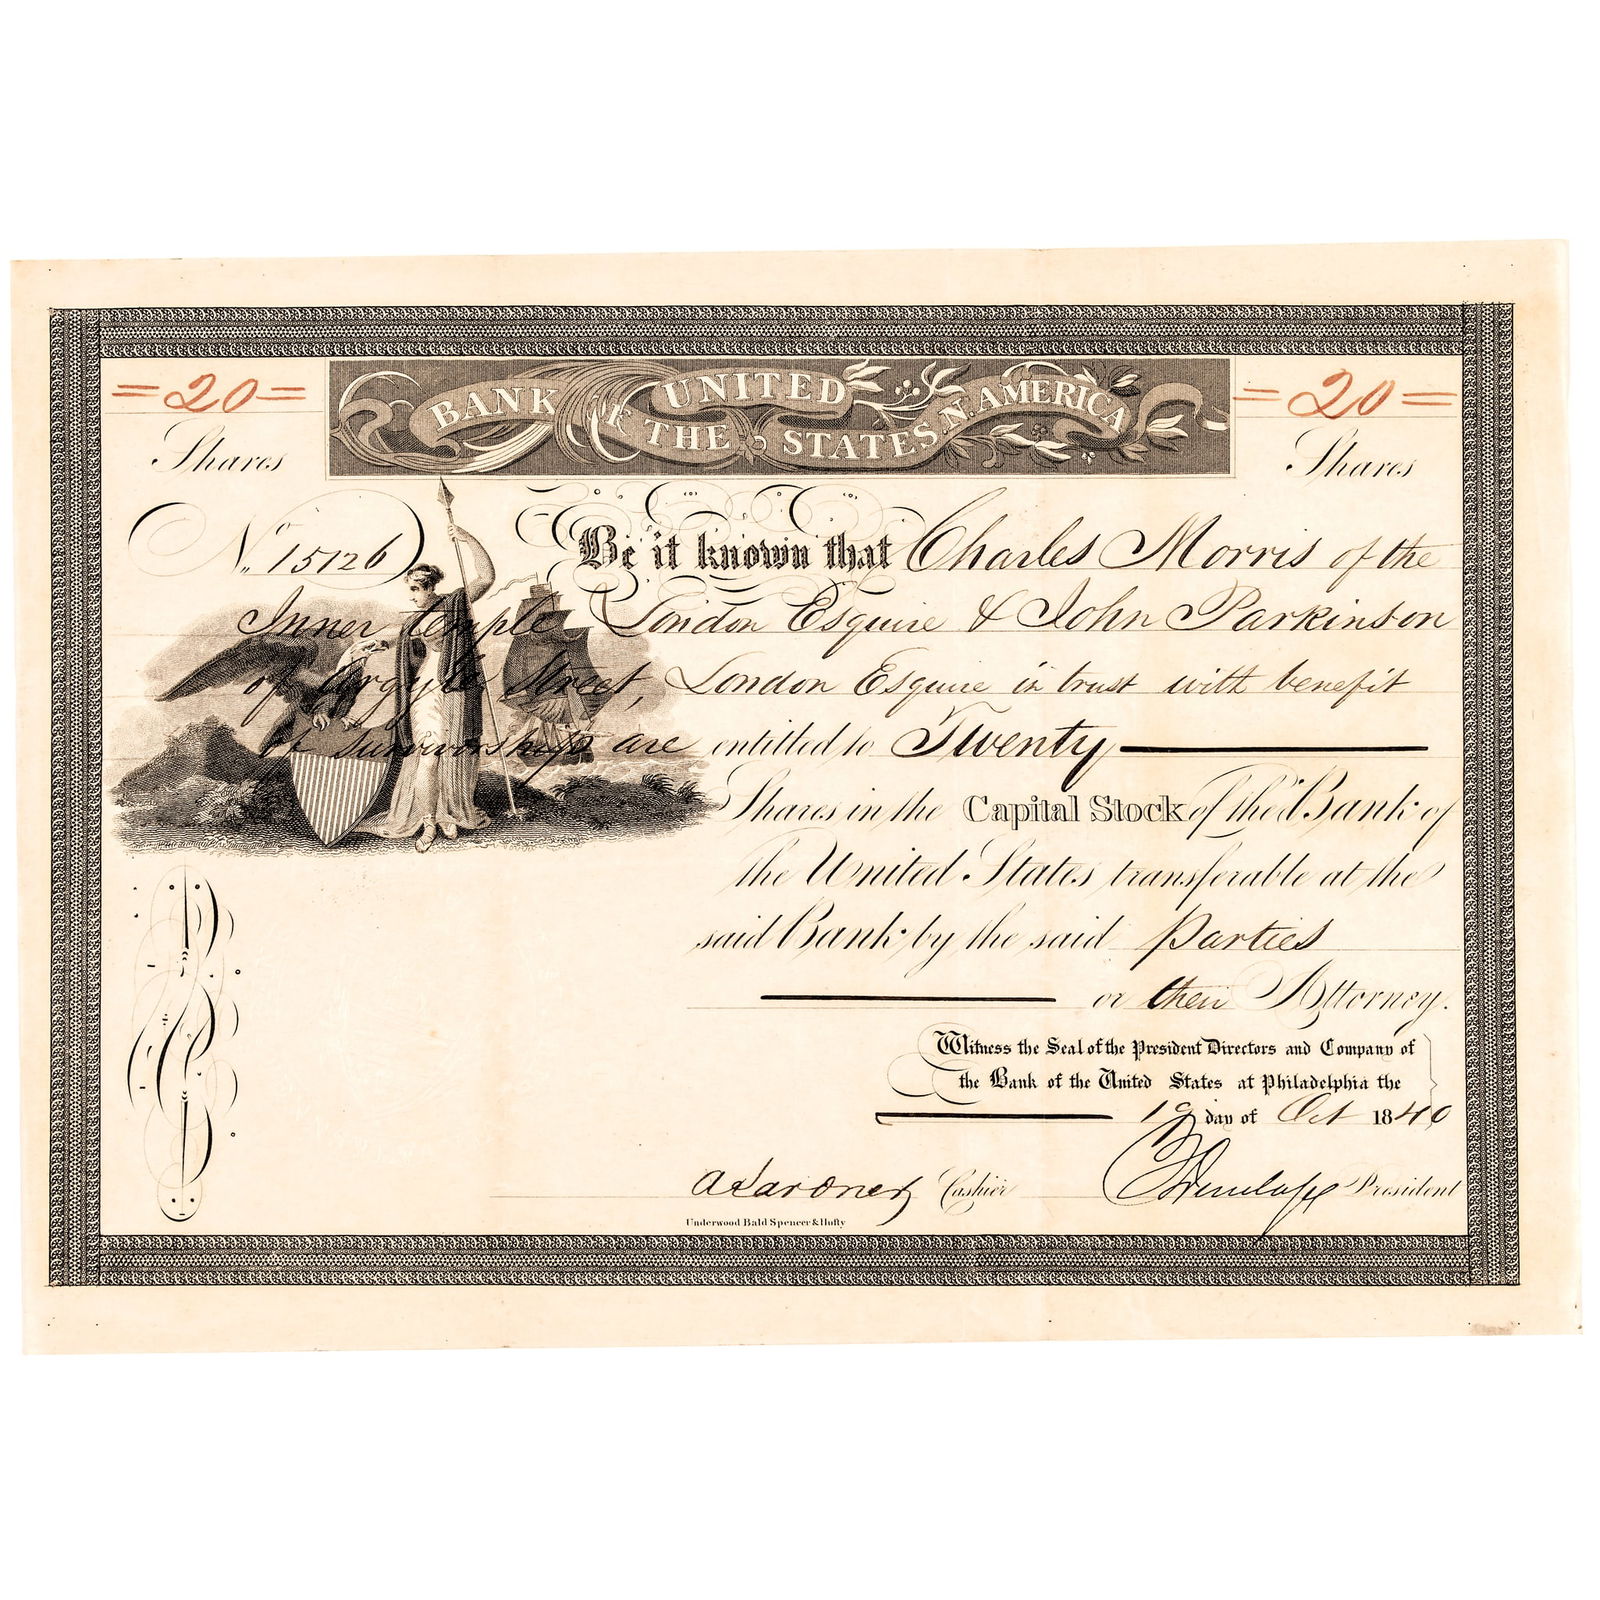 BANK OF THE UNITED STATES N. AMERICA
=20= =20=
Shares Shares
No. 15126
Be it known that Charles Morris of the
Inner temple London Esquire & John Parkinson
of Argyle Street, London Esquire in trust with benefit
of survivorship are entitled to Twenty
Shares in the Capital Stock of the Bank of
the United States transferable at the
said Bank by the said Parties
or their Attorney.
Witness the Seal of the President Directors and Company of
the Bank of the United States at Philadelphia the
19 day of Oct 1840
Cashier President
Underwood Bald Spencer & Hufty